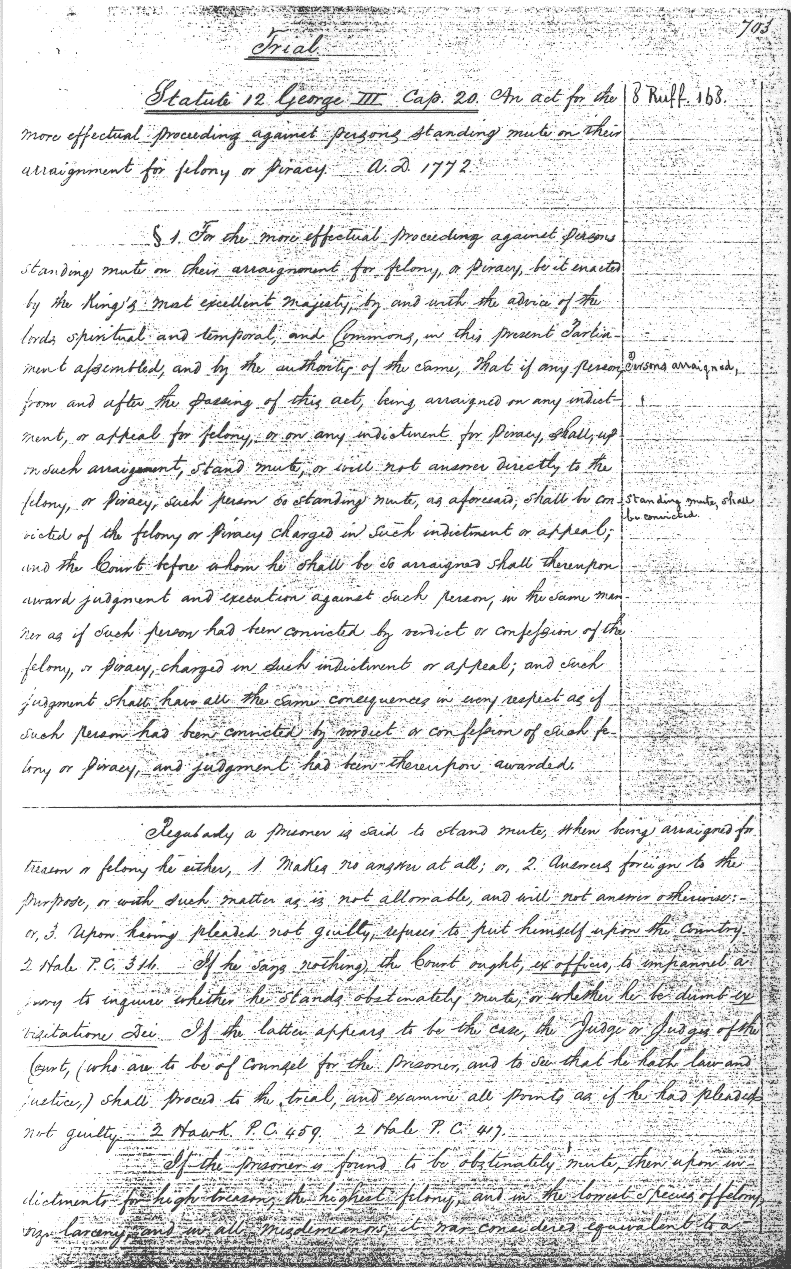 703
Trial
Statute 12 George III Cap. 20. An act for the
8 Ruff. 168.
more effectual proceeding against persons standing mute on their
arraignment for felony or Piracy. A.D. 1772
§ 1. For the more effectual proceeding against persons
standing mute on their arraignment for felony, or Piracy, be it enacted
by the King's most excellent majesty, by and with the advice of the
lords spiritual and temporal, and Commons, in this present Parlia-
ment assembled, and by the authority of the same, That if any person,
Persons arraigned,
from and after the passing of this act, being arraigned on any indict-
ment, or appeal for felony, or on any indictment for Piracy, shall, up
on such arraignment, stand mute, or will not answer directly to the
felony, or Piracy, such person so standing mute, as aforesaid, shall be con-
standing mute, shall
be convicted.
victed of the felony or Piracy charged in such indictment or appeal;
and the Court before whom he shall be so arraigned shall thereupon
award judgment and execution against such person, in the same man-
ner as if such person had been convicted by verdict or confession of the
felony, or Piracy, charged in such indictment or appeal; and such
judgment shall have all the same consequences in every respect as if
such person had been convicted by verdict or confession of such fe-
lony or Piracy, and judgment had been thereupon awarded.
Regularly a prisoner is said to stand mute, when being arraigned for
treason or felony he either, 1. Makes no answer at all; or, 2. Answers foreign to the
purpose, or with such matter as is not allowable, and will not answer otherwise:-
or, 3. Upon having pleaded not guilty, refuses to put himself upon the Country.
2 Hale P.C. 316. If he says nothing, the Court ought, ex officio, to impannel a
jury to inquire whether he stands obstinately mute, or whether he be dumb ex
visitatione Dei. If the latter appears to be the case, the Judge or Judges of the
Court, (who are to be of Counsel for the Prisoner, and to see that he hath law and
justice,) shall proceed to the trial, and examine all points as if he had pleaded
not guilty. 2 Hawk. P.C. 459. 2 Hale P.C. 417.
If the prisoner is found to be obstinately mute, then upon in-
dictments for high treason, the highest felony, and in the lowest species of felony,
viz. larceny, and in all misdemeanor, it was considered equivalent to a